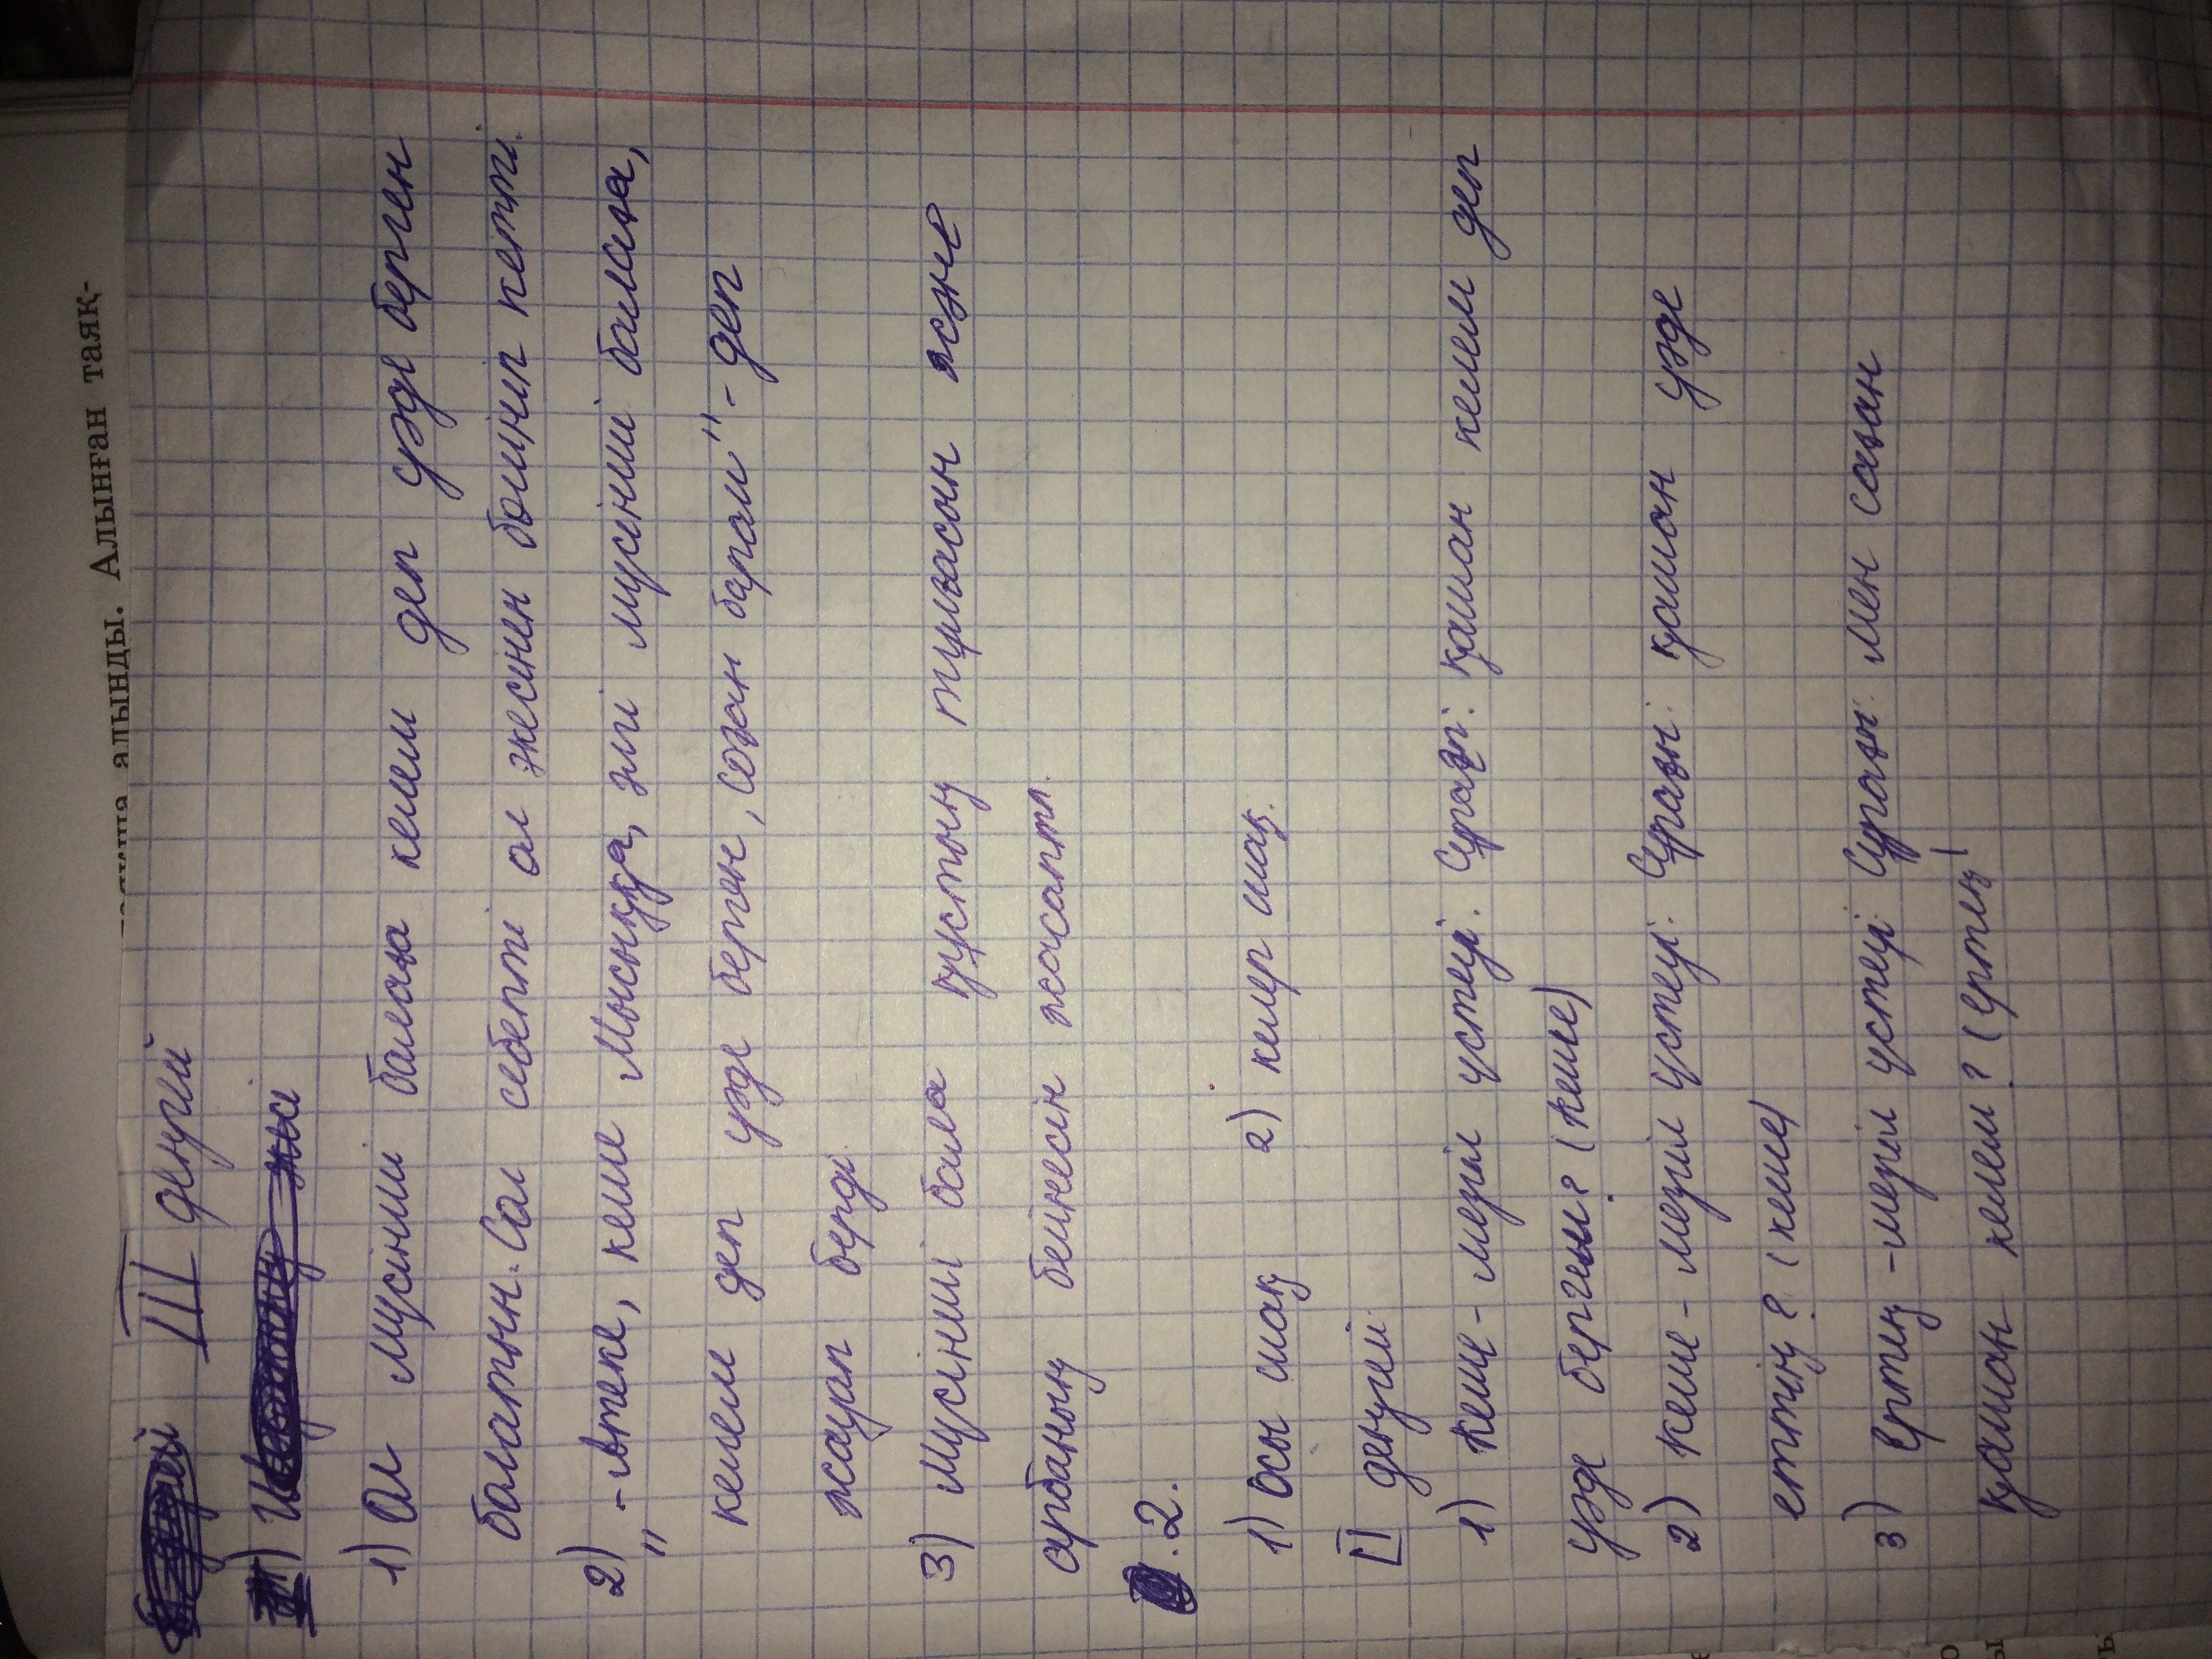 алынды. Алынған таяқ-
III деңгей
1) Ол мүсінші балаға келем деп уәде берген
болатын. Сол себепті ол әкесінен бөлініп кетті.
2) "-Әтеке, кеше Мысыққа, әлгі мүсінші балаға,
келем деп уәде берген, соған барам" - деп
жауап берді
3) Мүсінші бала құстың тұлғасын және
арбаның бейнесін жасапты.
2.
1) Осы шақ 2) келер шақ.
II деңгей
1) Кеше - мезгіл үстеуі. Сұрағы: қашан келем деп
уәде бергем? (Кеше)
2) Кеше - мезгіл үстеуі. Сұрағы: қашан уәде
еттің? (кеше)
3) Ертең - мезгіл үстеуі Сұрағы: мен саған
қашан келем? (Ертең)